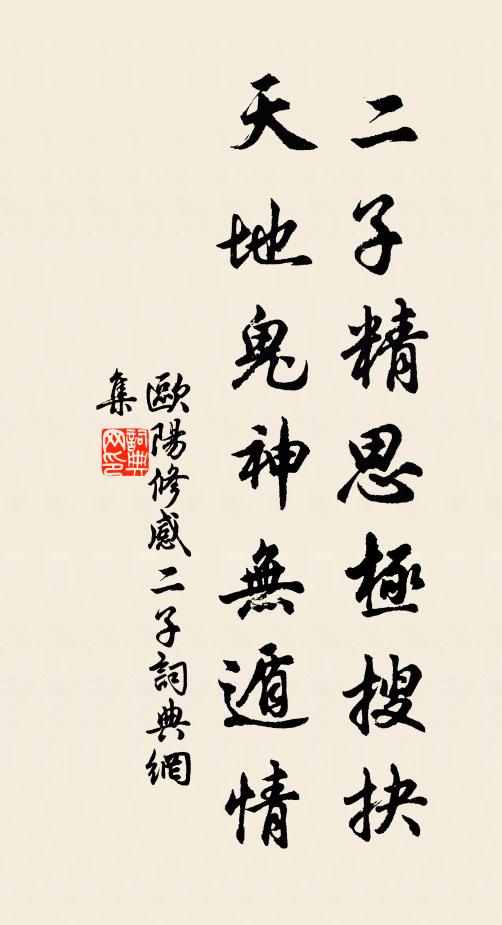 二子精思極搜抉
天地鬼神無遁情
歐陽修感二子詞典網
集
詞典
网印